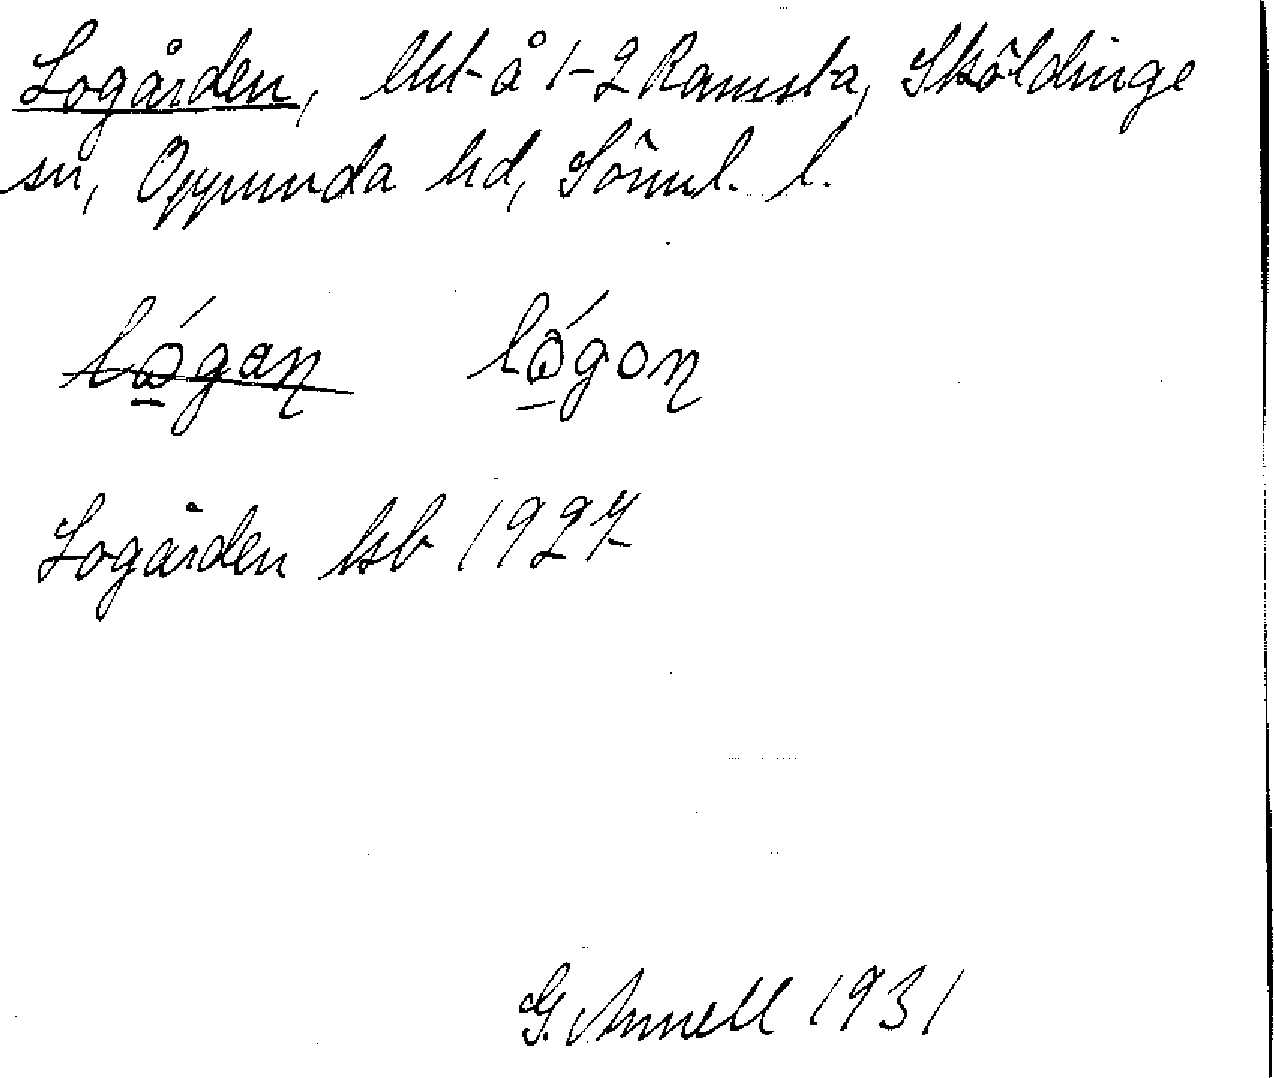 Logården, lht å 1-2 Ramsta, Sköldinge
sn, Oppunda hd, Söml. l.
lógon
Logården ksb 1927
G. Annell 1931